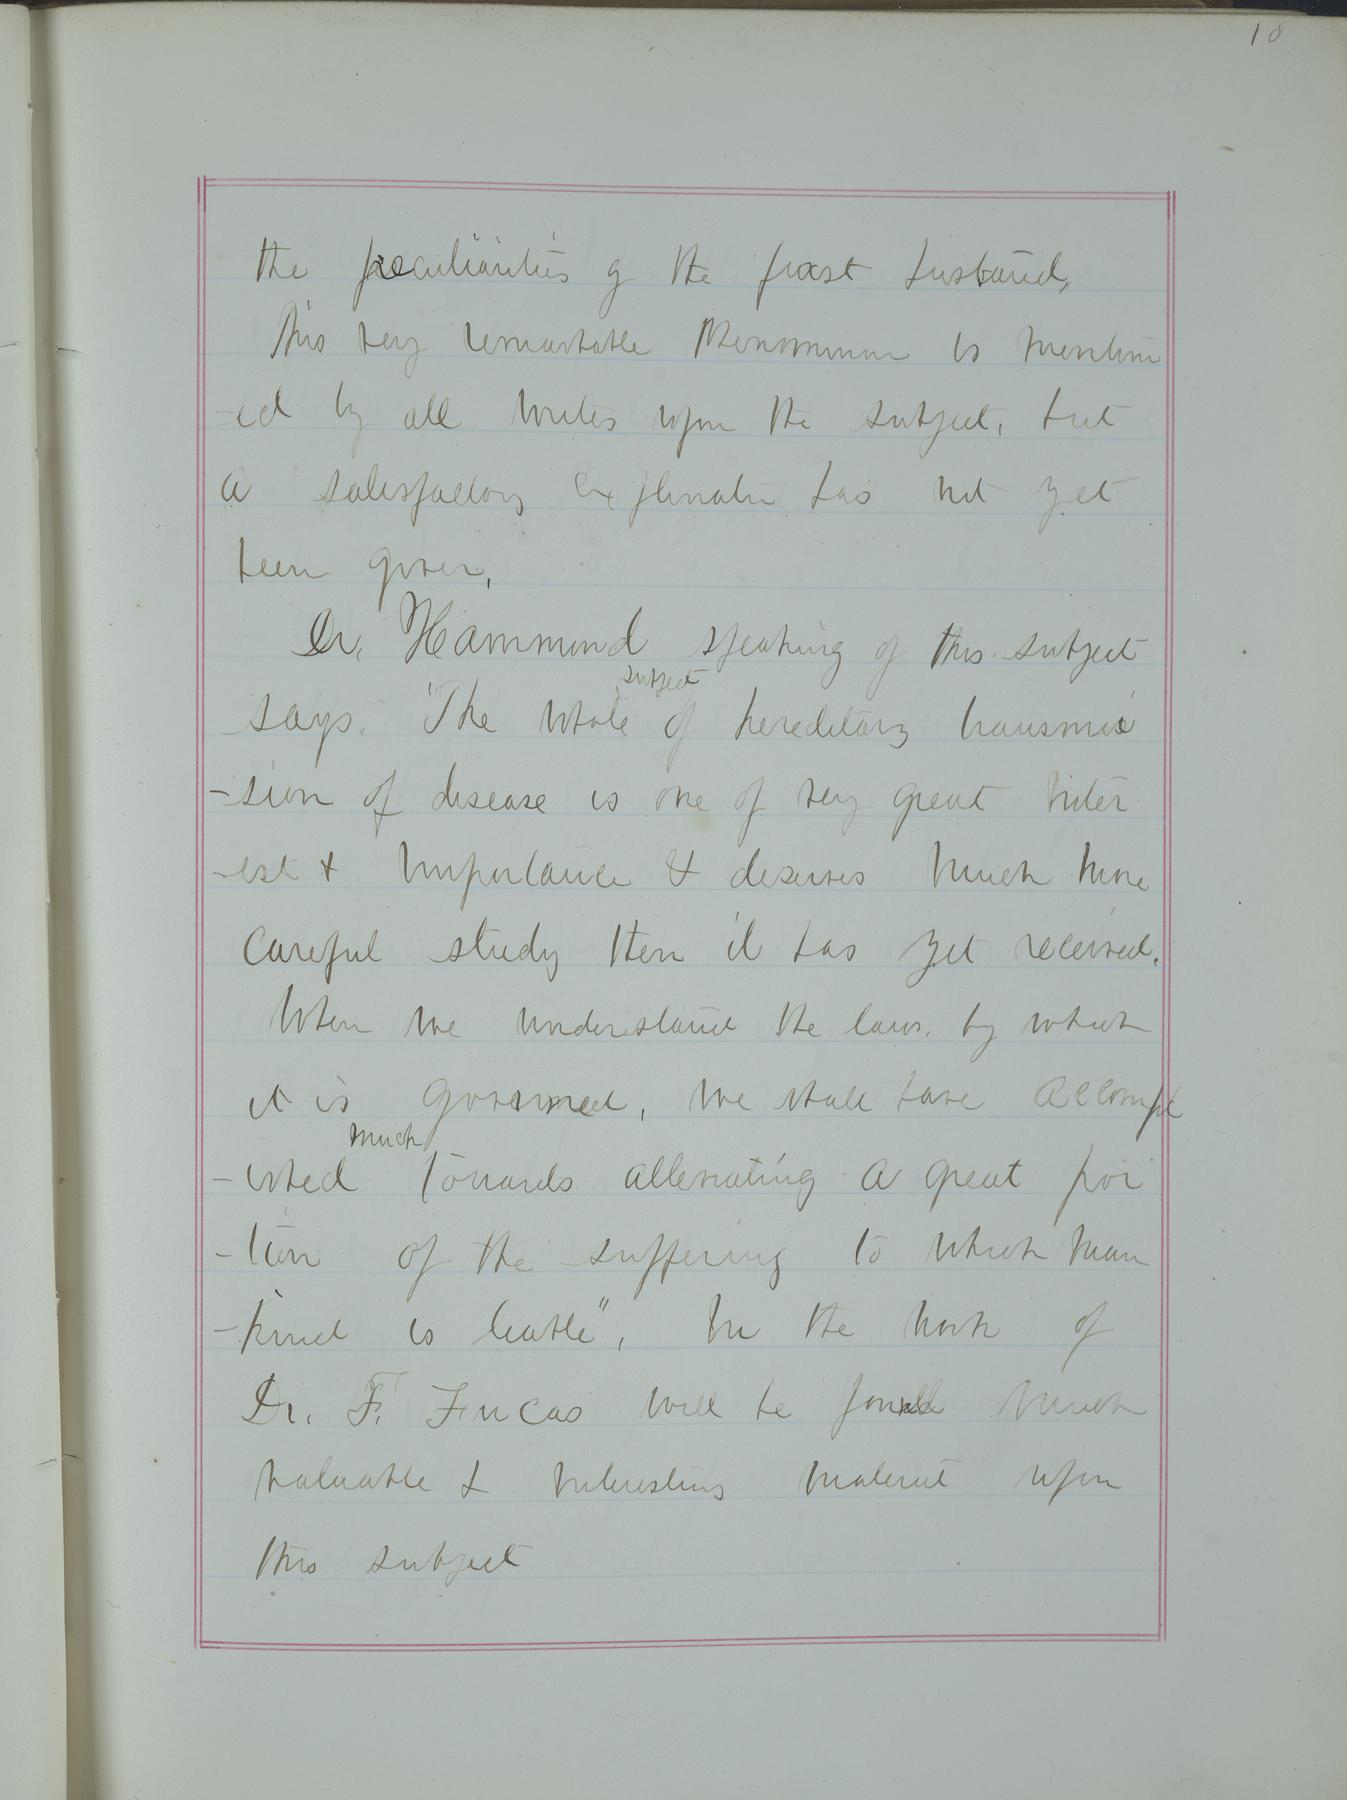 10
the peculiarities of the first husband,
This very remarkable Phenominon is mention
-ed by all writes upon the subject, but
a satisfactory explination has not yet
been given,
Dr. Hammond speaking of this subject
subject
says. "The whole of hereditary transmis
-sion of disease is one of very great inter
-est & importance & deserves much more
careful study then it has yet received.
When we understand the laws. by which
it is governed, we shall have accompl
much
-ished towards alleviating a great por
-tion of the suffering to which man
-kind is liable", In the work of
Dr. F. Lucas will be found much
valuable & interesting material upon
this subject